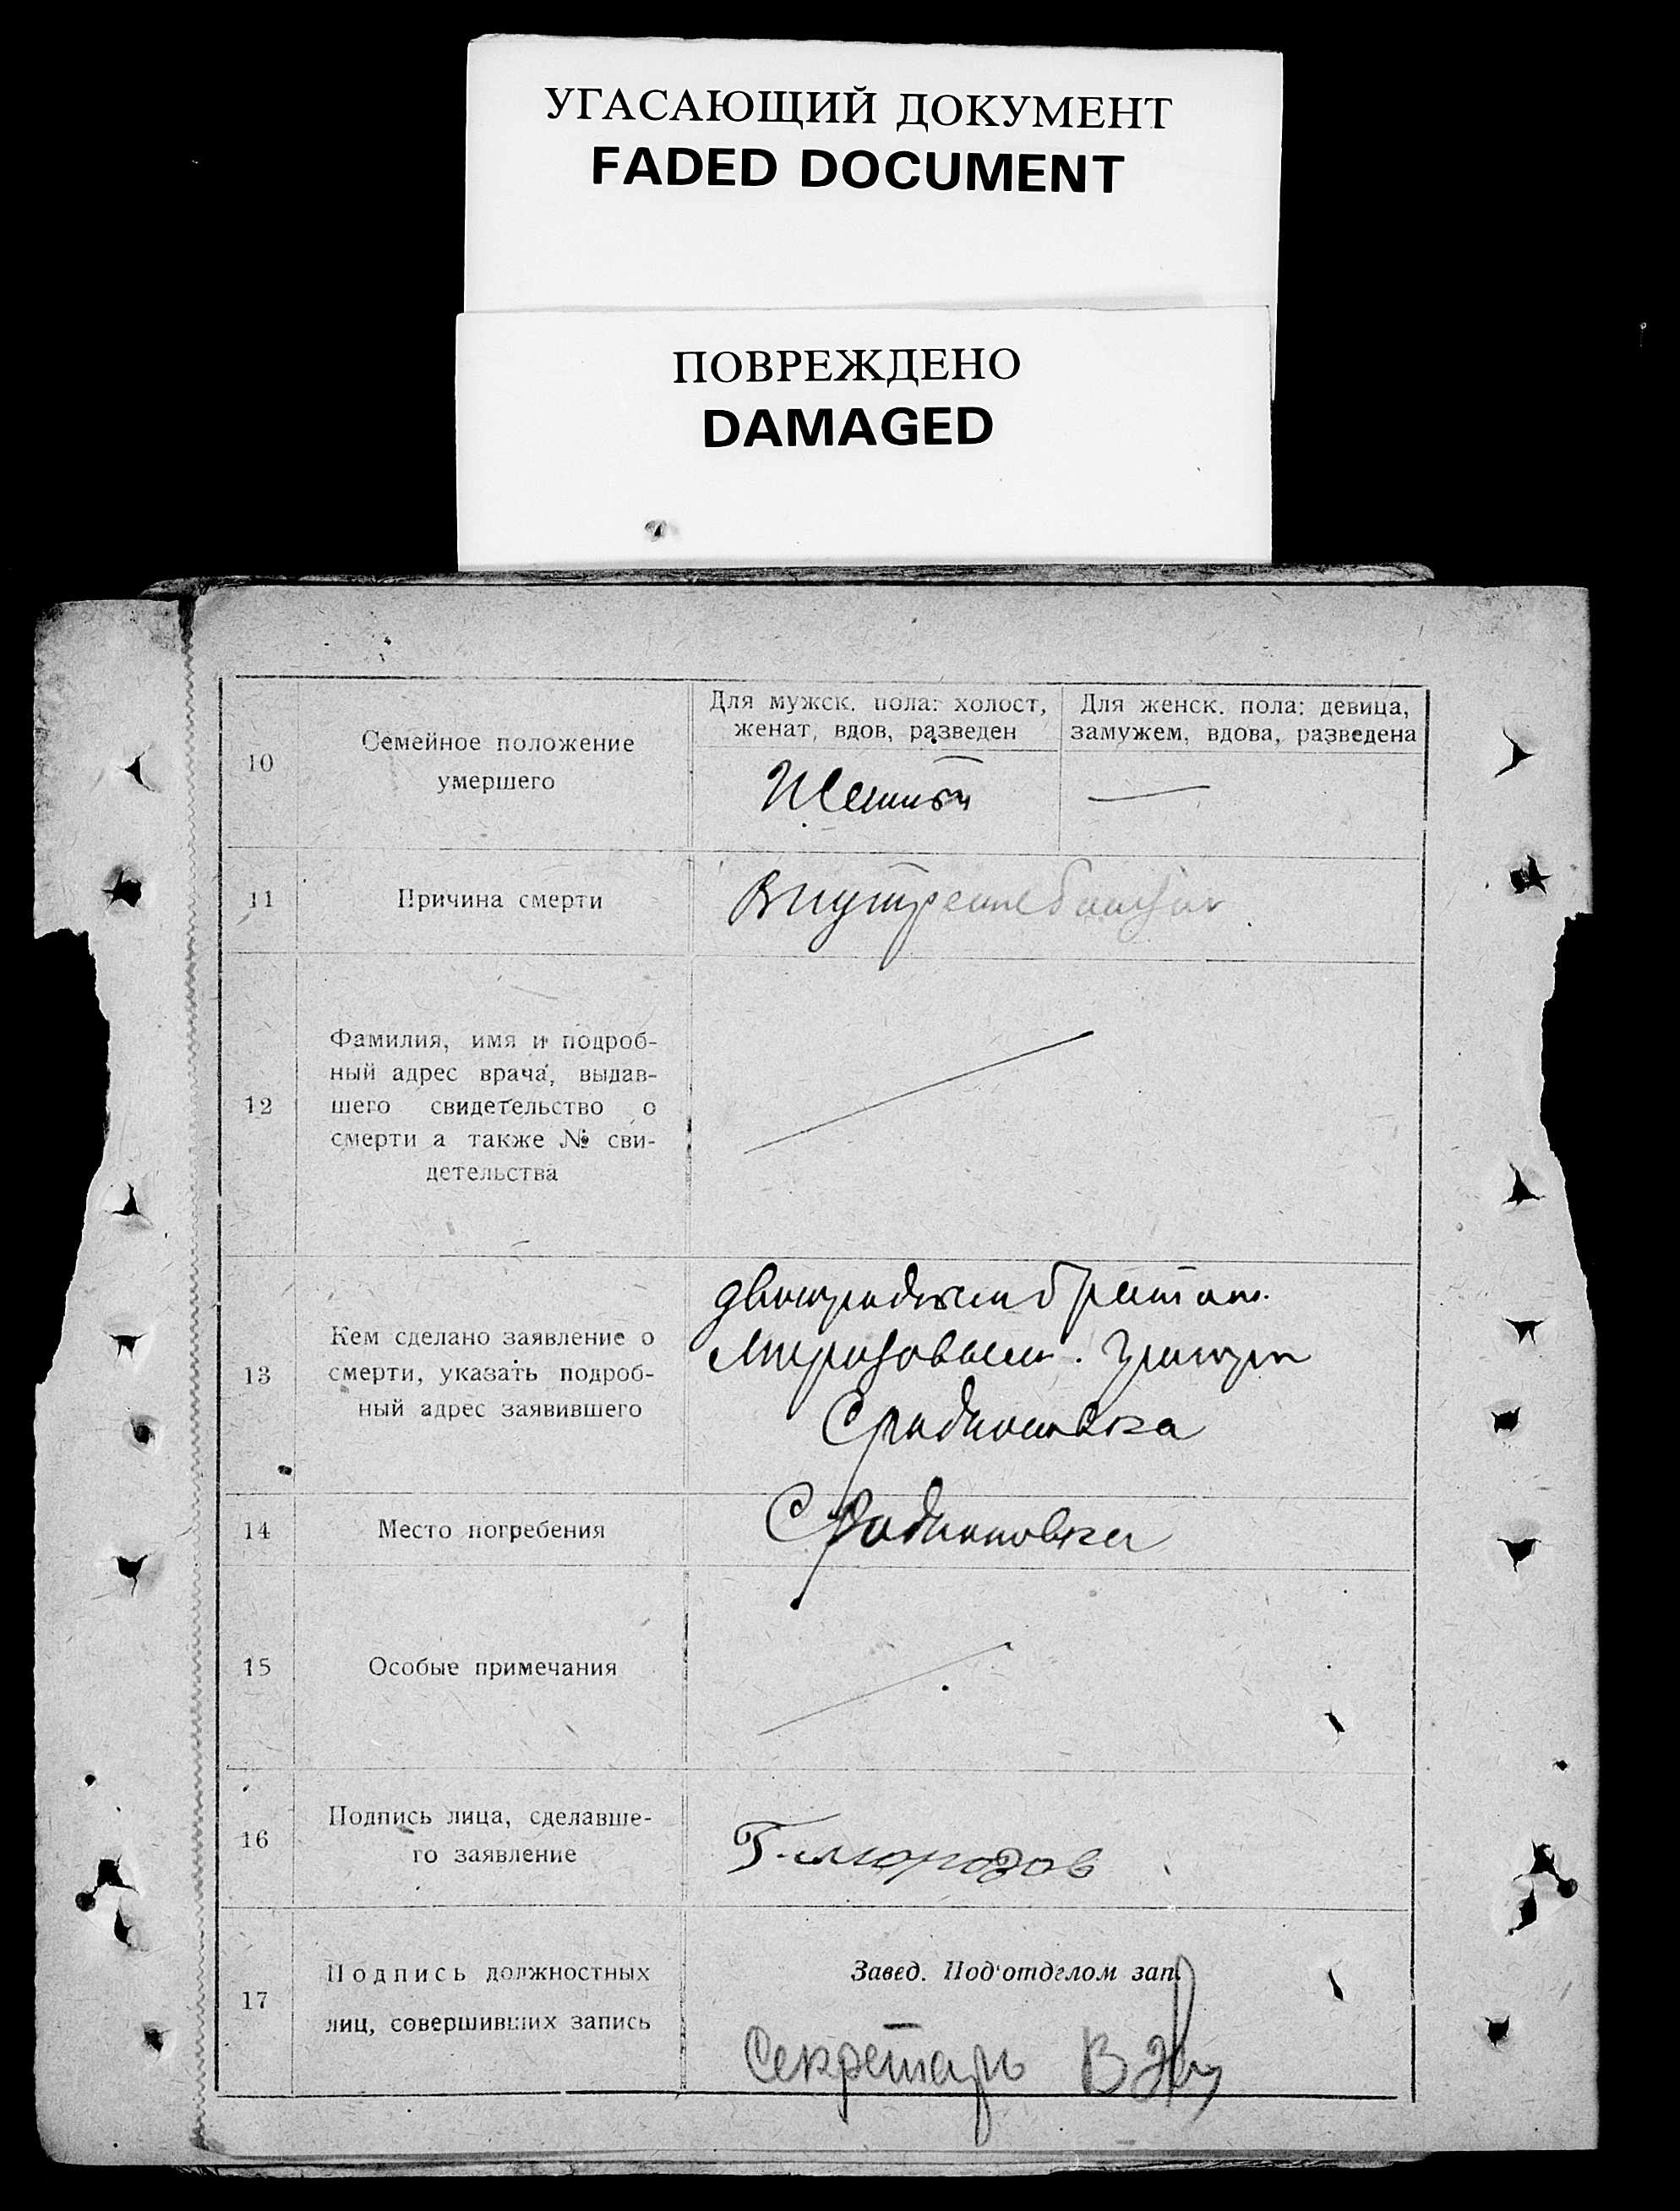 УГАСАЮЩИЙ ДОКУМЕНТ
FADED DOCUMENT
ПОВРЕЖДЕНО
DAMAGED
10
Семейное положение
умершего
Для мужск. пола: холост,
женат, вдов, разведен
Для женск. пола: девица,
замужем, вдова, разведена
11
Причина смерти
12
Фамилия, имя и подроб-
ный адрес врача, выдав-
шего свидетельство о
смерти а также № сви-
детельства
13
Кем сделано заявление о
смерти, указать подроб-
ный адрес заявившего
братом
14
Место погребения
С Радионовка
15
Особые примечания
16
Подпись лица, сделавше-
го заявление
Г. Морозов
17
Подпись должностных
лиц, совершивших запись
Завед. Под'отделом зап.
Секретарь